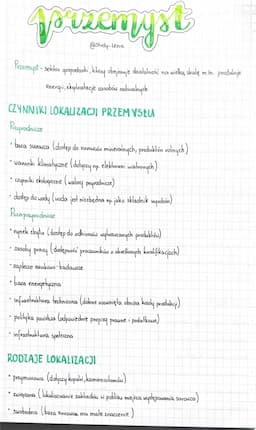 przemysł
@study-lena
Przemysł - sektor gospodarki, który obejmuje działalność na wielką skalę m.in. produkcję
energii, eksploatację zasobów naturalnych
CZYNNIKI LOKALIZACJI PRZEMYSŁU
Przyrodnicze
• baza surowca (dostęp do surowców mineralnych, produktów rolnych)
• warunki klimatyczne (dotyczy np. elektrowni wiatrowych)
• czynniki ekologiczne (walory przyrodnicze)
• dostęp do wody (woda jest niezbędna np. jako składnik wyrobów)
Pozaprzyrodnicze
• rynek zbytu (dostęp do odbiorców wytwarzanych produktów)
• zasoby pracy (dostępność pracowników o określonych kwalifikacjach)
• zaplecze naukowo-badawcze
• baza energetyczna
• infrastruktura techniczna (dobrze rozwinięta obniża koszty produkcji)
• polityka państwa (odpowiednie przepisy prawne - podatkowe)
• infrastruktura społeczna
RODZAJE LOKALIZACJI
• przymusowa (dotyczy kopalni, kamieniołomów)
• związana (lokalizowanie zakładów w pobliżu miejsca występowania surowca)
• swobodna (baza surowcowa ma małe znaczenie)